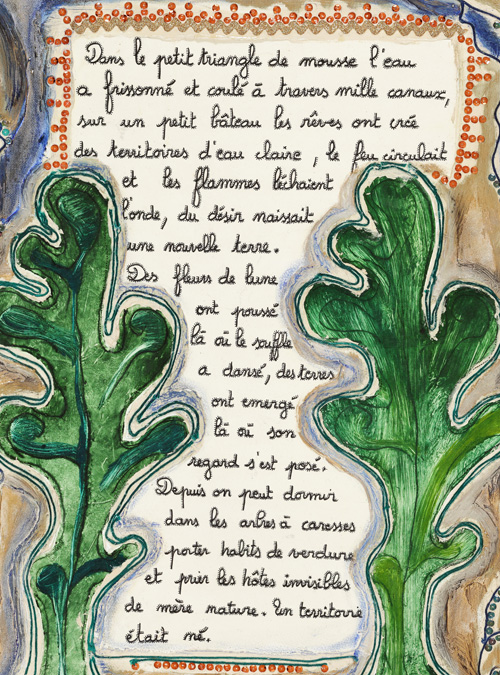 Dans le petit triangle de mousse l'eau
a frissonné et coulé à travers mille canaux,
sur un petit bâteau les rêves ont crée
des territoires d'eau claire, le feu circulait
et les flammes léchaient
l'onde, du désir naissait
une nouvelle terre.
Des fleurs de lune
ont poussé
là où le souffle
a dansé, des terres
ont emergé
là où son
regard s'est posé.
Depuis on peut dormir
dans les arbres à caresses
porter habits de verdure
et prier les hôtes invisibles
de mère nature. Un territoire
était né.